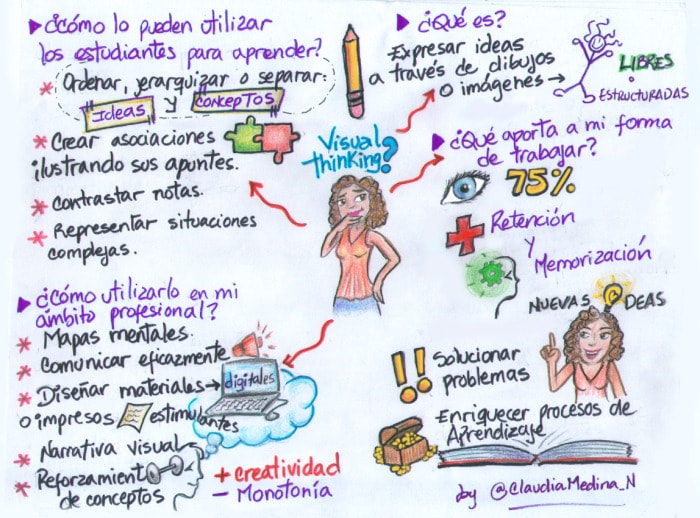 ¿Cómo lo pueden utilizar
los estudiantes para aprender?
* Ordenar, jerarquizar o separar:
Ideas y Conceptos
* Crear asociaciones
ilustrando sus apuntes.
* Contrastar notas.
* Representar situaciones
complejas.
Visual
thinking?
¿Qué es?
Expresar ideas
a través de dibujos
o imágenes →
LIBRES
o
ESTRUCTURADAS
¿Qué aporta a mi forma
de trabajar?
75%
+ Retención
y
Memorización
NUEVAS IDEAS
!! Solucionar
problemas
Enriquecer procesos de
Aprendizaje
¿Cómo utilizarlo en mi
ámbito profesional?
* Mapas mentales.
* Comunicar eficazmente
* Diseñar materiales → digitales
o impresos estimulantes
* Narrativa visual
* Reforzamiento
de conceptos
+ creatividad
- Monotonía
by @ClaudiaMedina_N